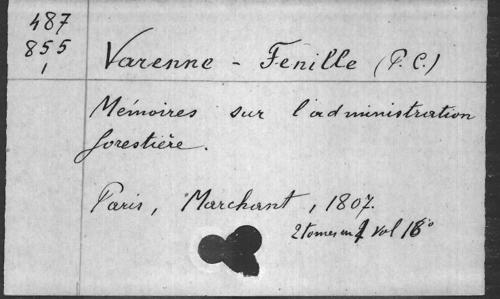 487
855
1
Varenne - Fenille (P. C.)
Mémoires sur l'administration
forestière.
Paris, Marchant, 1807.
2 tomes en 1 vol 16°